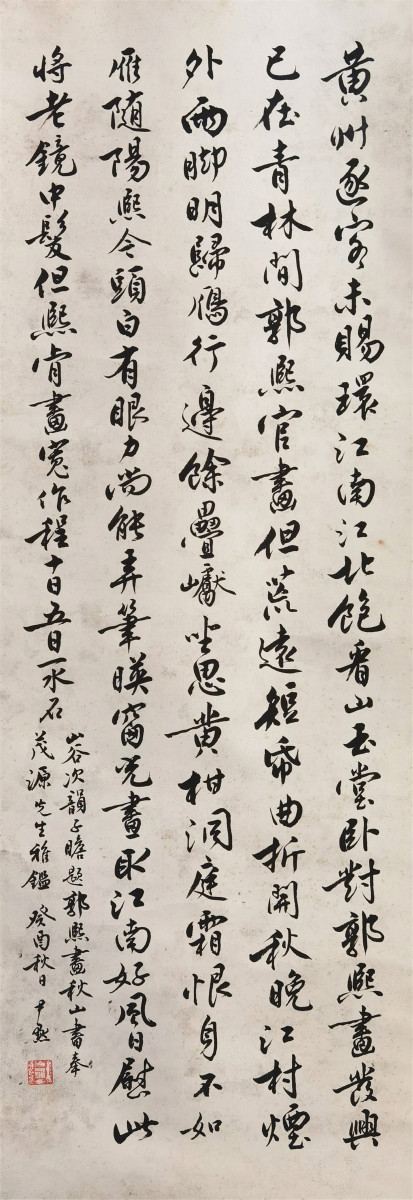 黄州逐客未賜環江南江北飽看山玉堂卧對郭熙畫發興
已在青林間郭熙官畫但荒遠短帋曲折開秋晚江村煙
外雨脚明歸鴈行邊餘疊巘坐思黄柑洞庭霜恨身不如
雁随陽熙今頭白有眼力尚能弄筆暎窗光畫取江南好風日慰此
將老鏡中髮但熙肯畫寬作程十日五日一水石
山谷次韻子瞻題郭熙畫秋山書奉
茂源先生雅鑑 癸酉秋日 尹默